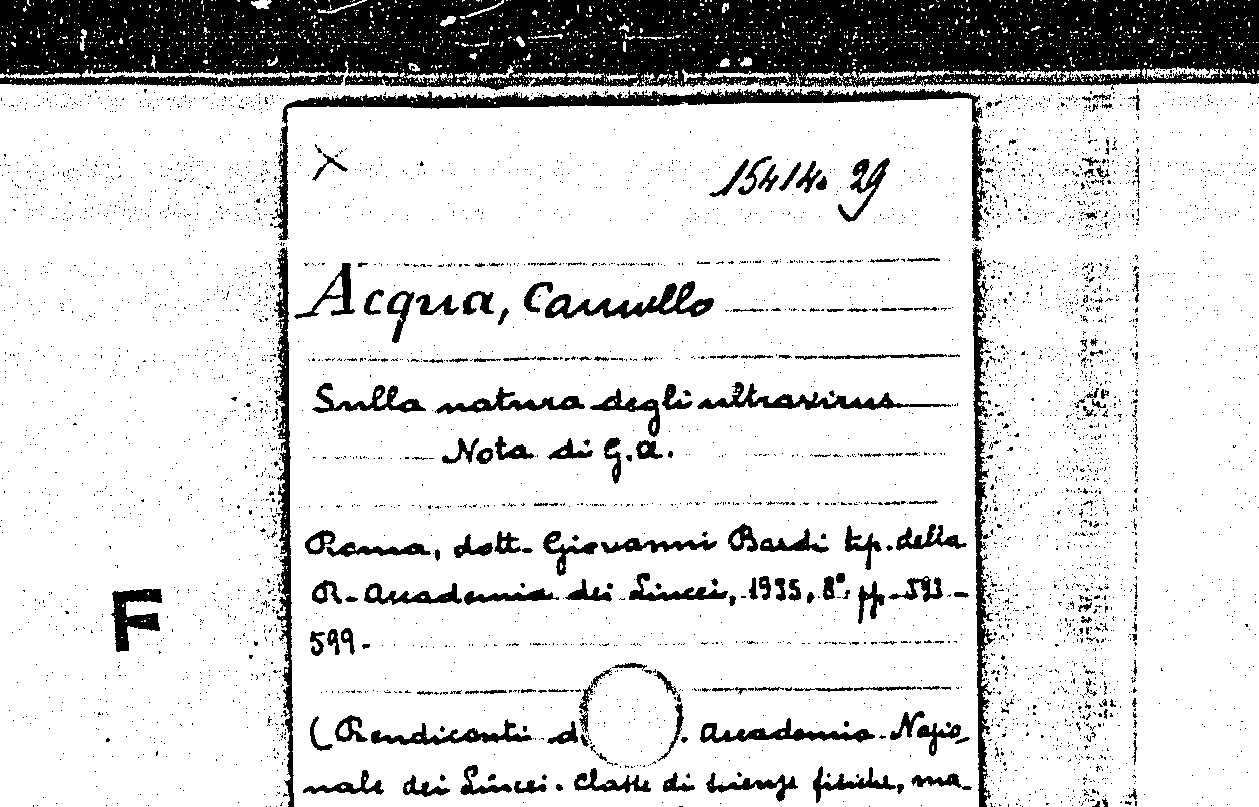 X
15414. 29
Acqua, Camillo
Sulla natura degli ultravirus.
Nota di G.A.
Roma, dott. Giovanni Bardi tip. della
R. Accademia dei Lincei, 1935, 8°, pp. 593-
599.
F
(Rendiconti d . Accademia Nazio-
nale dei Lincei. Classe di scienze fisiche, ma-